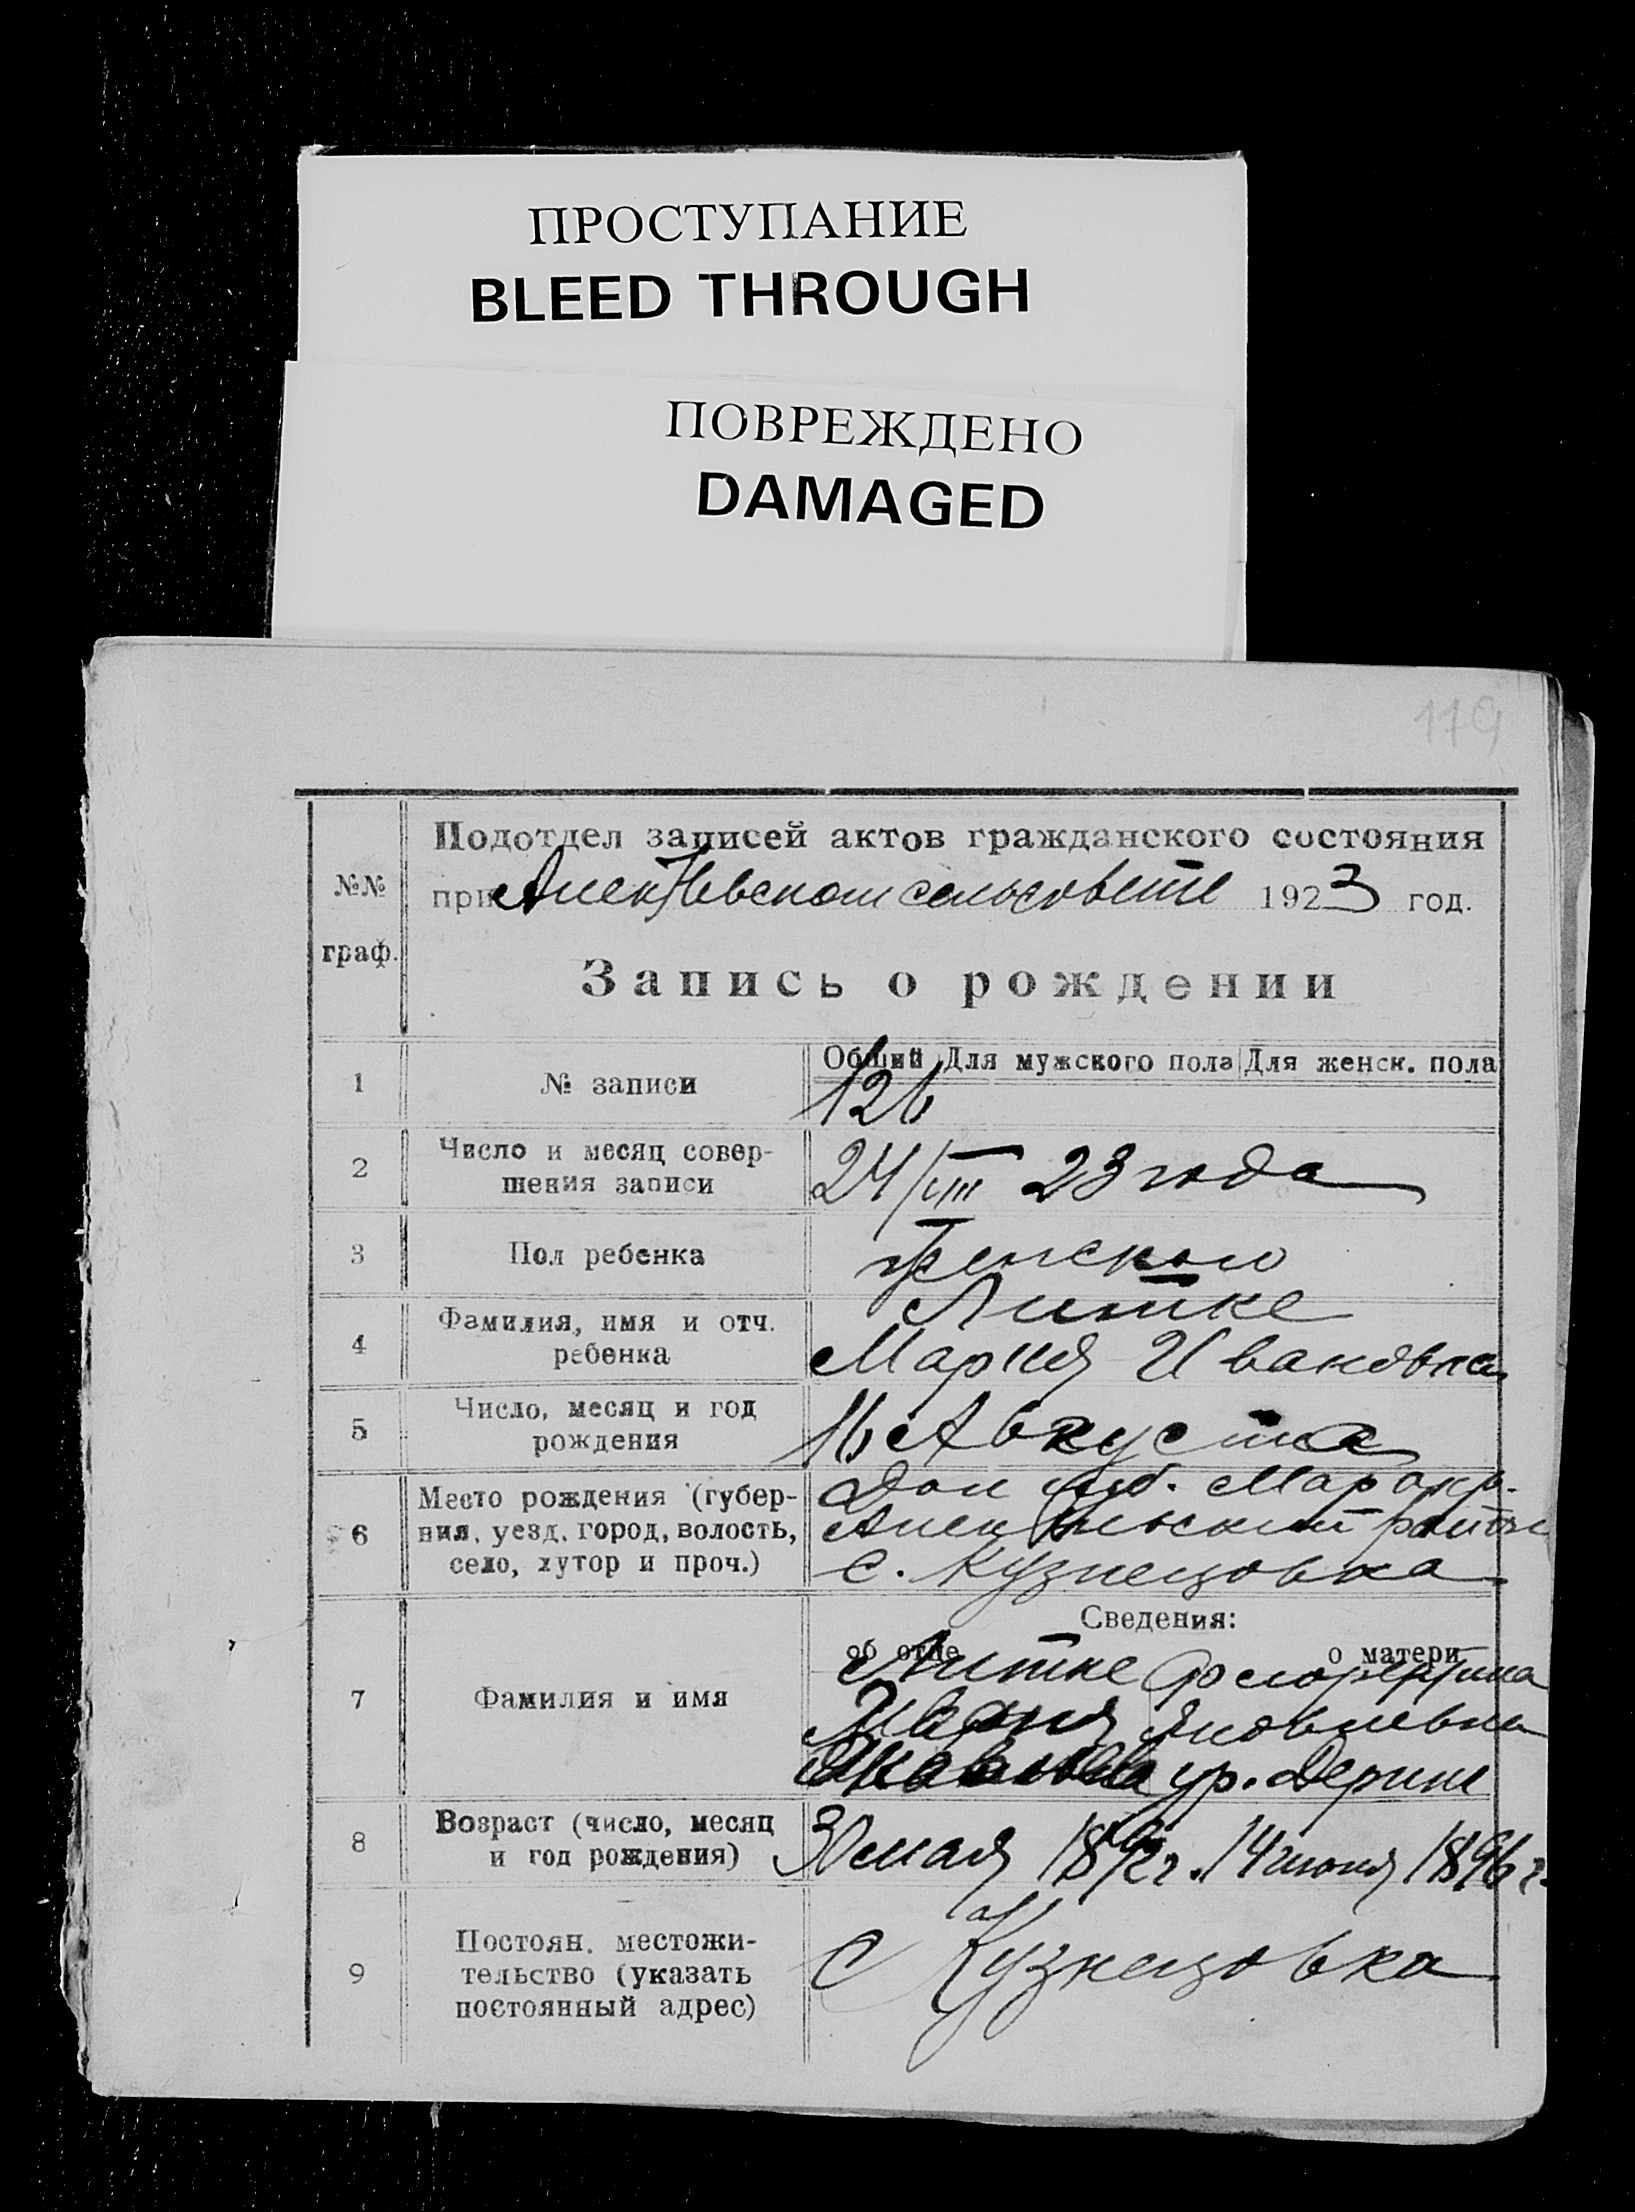 ПРОСТУПАНИЕ
BLEED THROUGH
ПОВРЕЖДЕНО
DAMAGED
119
Подотдел записей актов гражданского состояния
№№
при Алек Невском сельсовете 1923 год.
граф.
Запись о рождении
Общий Для мужского пола Для женск. пола
1 № записи 126
2 Число и месяц совер-
шения записи 24/VIII 23 года
3 Пол ребенка женского
Литке
4 Фамилия, имя и отч.
ребенка Мария Ивановна
5 Число, месяц и год
рождения 16 Августа
Место рождения (губер- Дон губ. Мар окр.
6 ния, уезд, город, волость,
село, хутор и проч.) с. Кузнецовка
Сведения:
об отце о матери
Литке Флорентина
7 Фамилия и имя Яковлевна
ур. Дерине
8 Возраст (число, месяц
и год рождения) 30 мая 1892 г. 14 июня 1896 г.
9 Постоян. местожи-
тельство (указать с Кузнецовка
постоянный адрес)